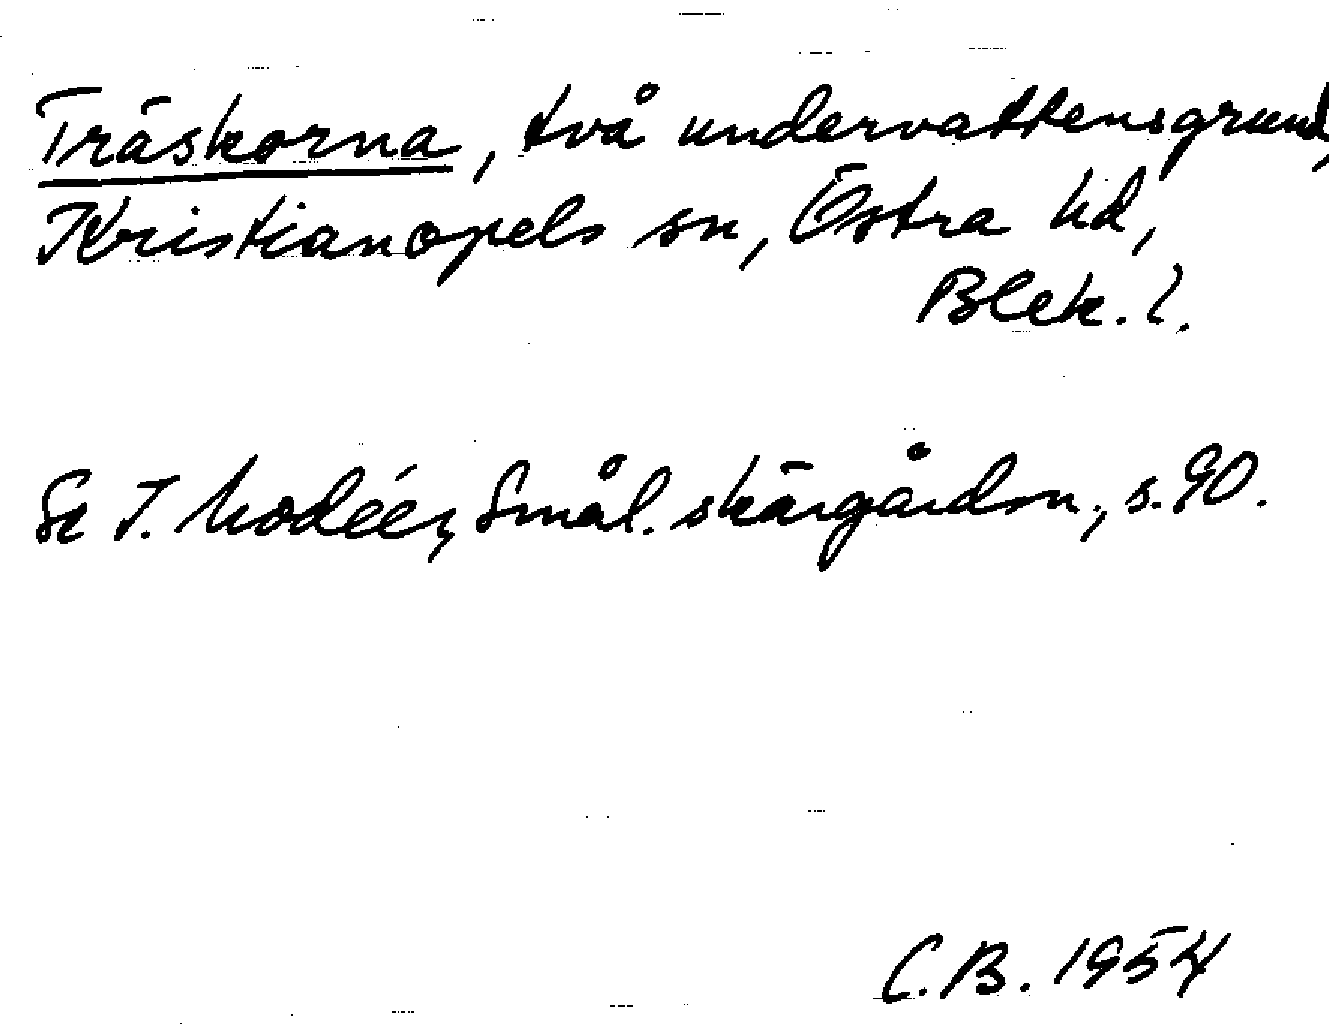 Träskorna, två undervattensgrund,
Kristianopels sn, Östra hd,
Blek. l.
Se I. Modéer, Smål. skärgårdsn., s. 90.
C.B. 1954